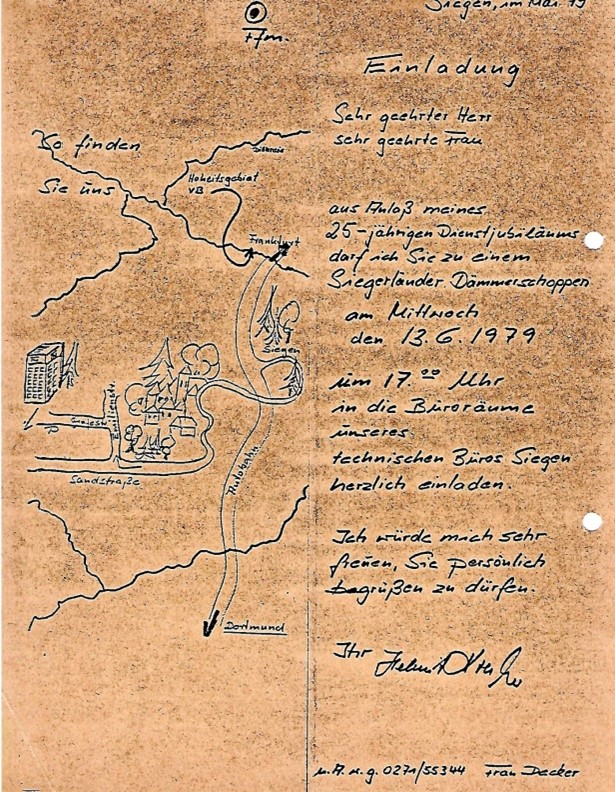 Siegen, im Mai 79
Ffm.
Einladung
Sehr geehrter Herr
sehr geehrte Frau
aus Anlaß meines
25-jährigen Dienstjubiläums
darf ich Sie zu einem
Siegerländer Dämmerschoppen
am Mittwoch
den 13.6.1979
um 17.00 Uhr
in die Büroräume
unseres
technischen Büros Siegen
herzlich einladen.
Ich würde mich sehr
freuen, Sie persönlich
begrüßen zu dürfen.
Ihr
u.A.w.g. 0271/55344 Frau Decker
So finden
Sie uns
Hoheitsgebiet
VB
Frankfurt
Siegen
Sandstraße
Autobahn
Dortmund